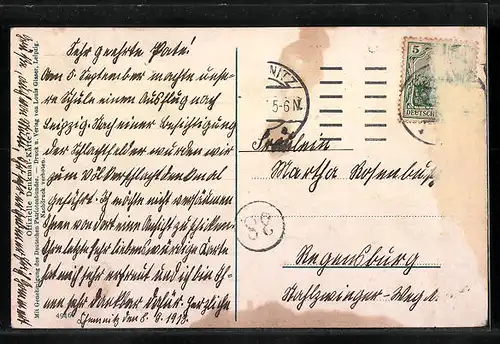 Sehr geehrte Pate!
Am 5. September machte unse-
re Schule einen Ausflug nach
Leipzig. Nach einer Besichtigung
der Schlachtfelder wurden wir
zum Völkerschlachtdenkmal
geführt. Ich möchte nicht versäumen
Ihnen von dort eine Ansicht zu schicken.
Ihre letzte sehr liebenswürdige Karte
hat mich sehr erfreut und ich bin Ih-
nen sehr dankbar dafür. Herzliche
Chemnitz den 8. 9. 1913.
Offizielle Denkmals-Karte.
Mit Genehmigung des Deutschen Patriotenbundes. — Druck u. Verlag von Louis Glaser, Leipzig.
Nachdruck verboten.
NITZ
5-6 N.
5
DEUTSCHES
Fräulein
Martha Rosenbusch
38
Regensburg
Stahlzwinger-Weg